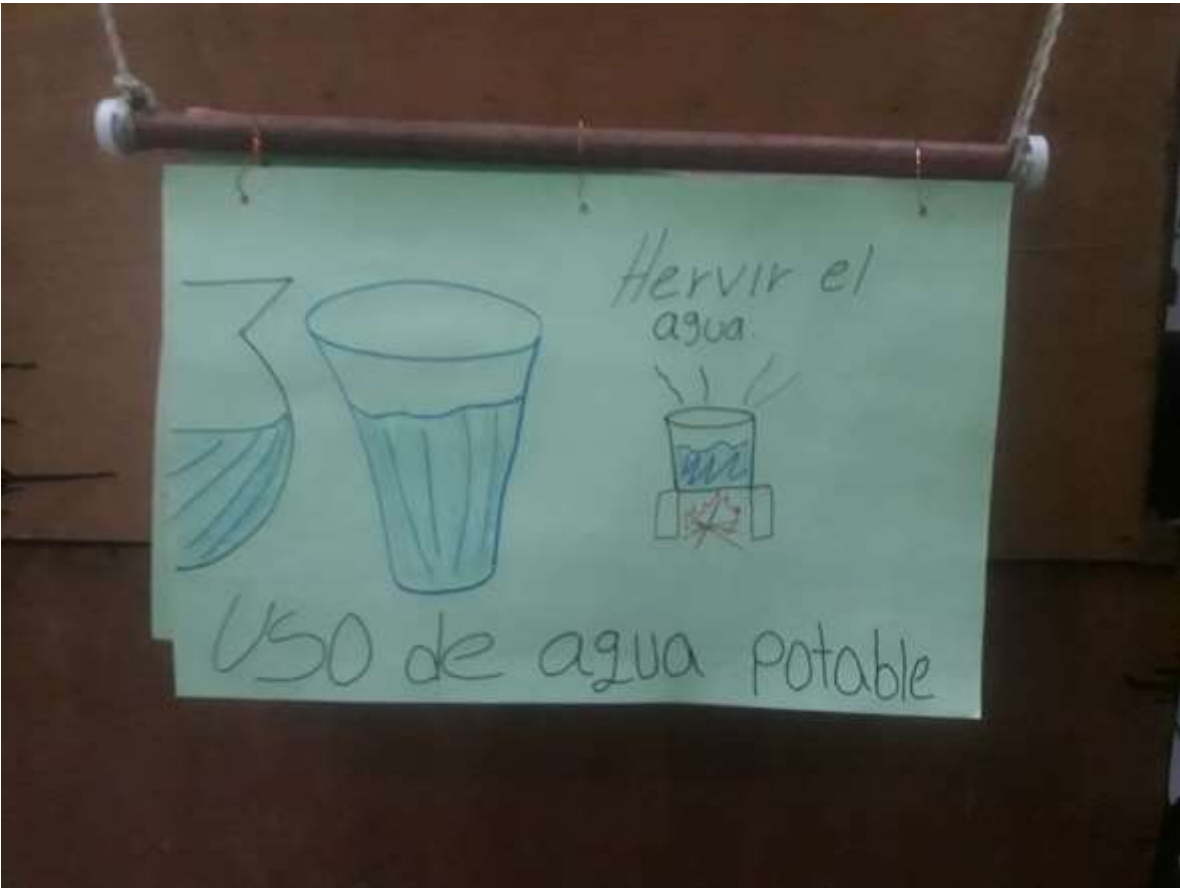 Hervir el
agua.
USO de agua potable